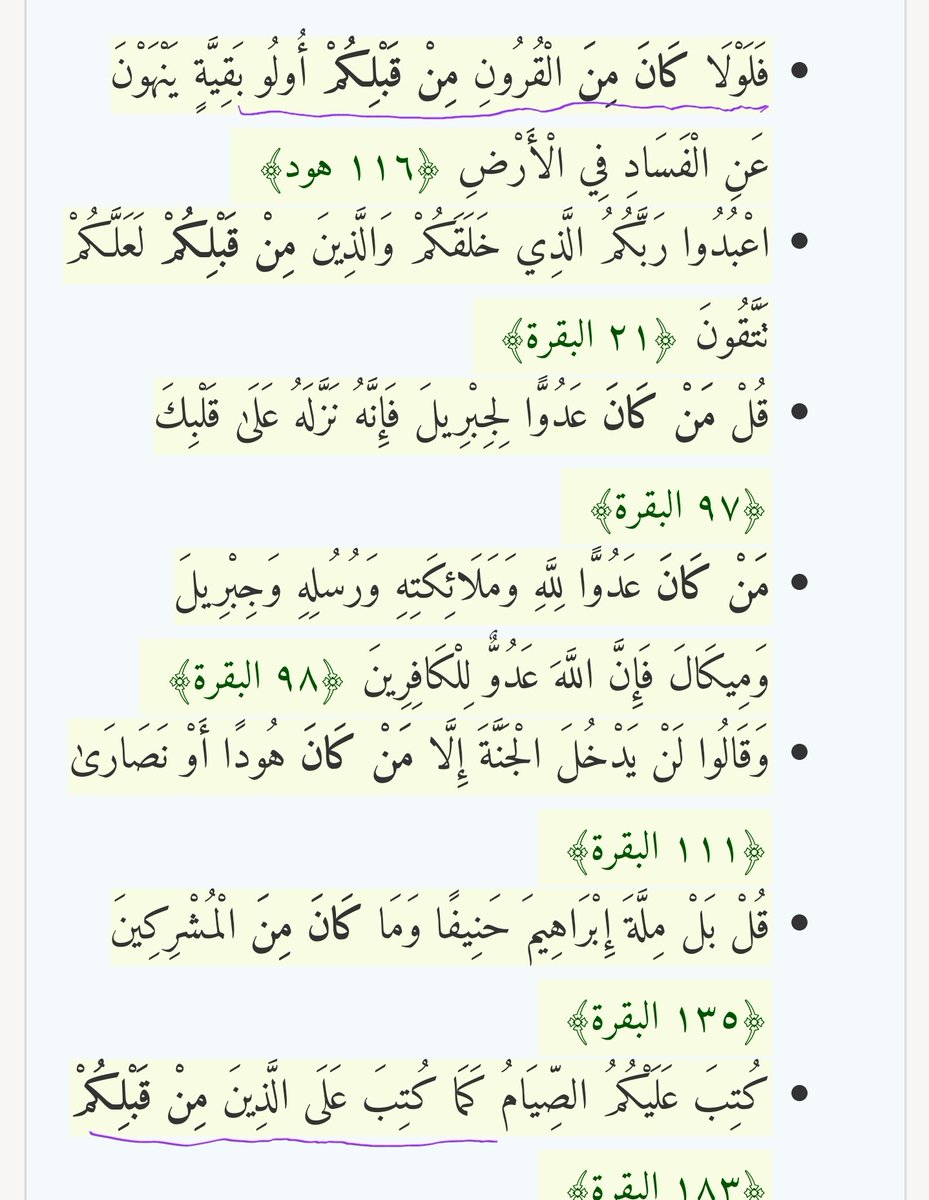 • فَلَوْلَا كَانَ مِنَ الْقُرُونِ مِنْ قَبْلِكُمْ أُولُو بَقِيَّةٍ يَنْهَوْنَ
عَنِ الْفَسَادِ فِي الْأَرْضِ ﴿١١٦ هود﴾
• اعْبُدُوا رَبَّكُمُ الَّذِي خَلَقَكُمْ وَالَّذِينَ مِنْ قَبْلِكُمْ لَعَلَّكُمْ
تَتَّقُونَ ﴿٢١ البقرة﴾
• قُلْ مَنْ كَانَ عَدُوًّا لِجِبْرِيلَ فَإِنَّهُ نَزَّلَهُ عَلَىٰ قَلْبِكَ
﴿٩٧ البقرة﴾
• مَنْ كَانَ عَدُوًّا لِلَّهِ وَمَلَائِكَتِهِ وَرُسُلِهِ وَجِبْرِيلَ
وَمِيكَالَ فَإِنَّ اللَّهَ عَدُوٌّ لِلْكَافِرِينَ ﴿٩٨ البقرة﴾
• وَقَالُوا لَنْ يَدْخُلَ الْجَنَّةَ إِلَّا مَنْ كَانَ هُودًا أَوْ نَصَارَىٰ
﴿١١١ البقرة﴾
• قُلْ بَلْ مِلَّةَ إِبْرَاهِيمَ حَنِيفًا وَمَا كَانَ مِنَ الْمُشْرِكِينَ
﴿١٣٥ البقرة﴾
• كُتِبَ عَلَيْكُمُ الصِّيَامُ كَمَا كُتِبَ عَلَى الَّذِينَ مِنْ قَبْلِكُمْ
﴿١٨٣ البقرة﴾